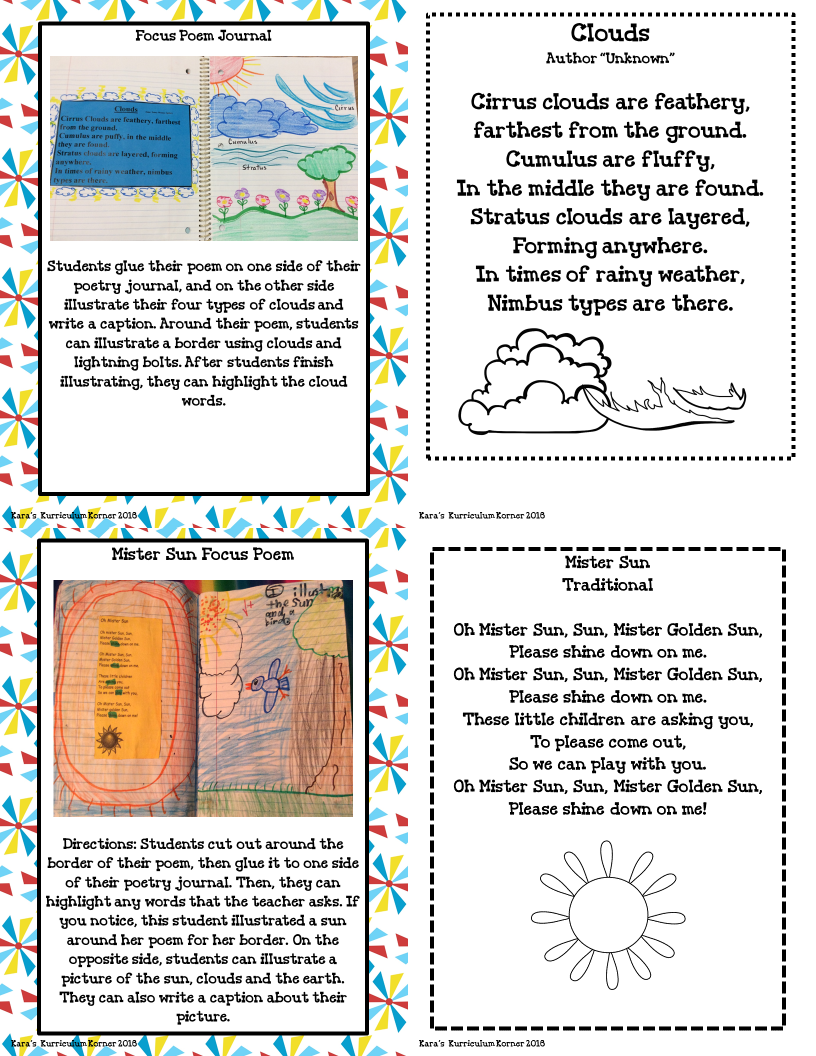 Focus Poem Journal
Clouds
Cirrus Clouds are feathery, farthest
from the ground.
Cumulus are puffy, in the middle
they are found.
Stratus clouds are layered, forming
anywhere.
In times of rainy weather, nimbus
types are there.
Cirrus
Cumulus
Stratus
Students glue their poem on one side of their
poetry journal, and on the other side
illustrate their four types of clouds and
write a caption. Around their poem, students
can illustrate a border using clouds and
lightning bolts. After students finish
illustrating, they can highlight the cloud
words.
Kara's Kurriculum Korner 2016
Clouds
Author "Unknown"
Cirrus clouds are feathery,
farthest from the ground.
Cumulus are fluffy,
In the middle they are found.
Stratus clouds are layered,
Forming anywhere.
In times of rainy weather,
Nimbus types are there.
Kara's Kurriculum Korner 2016
Mister Sun Focus Poem
Oh Mister Sun
Oh mister Sun, Sun,
Mister Golden Sun,
Please down on me.
Oh Mister Sun, Sun,
Mister Golden Sun,
Please down on me.
These little children
Are you,
To please come out
So we can with you.
Oh Mister Sun, Sun,
Mister Golden Sun,
Please down on me!
I illust
the Sun
and a
bird
Directions: Students cut out around the
border of their poem, then glue it to one side
of their poetry journal. Then, they can
highlight any words that the teacher asks. If
you notice, this student illustrated a sun
around her poem for her border. On the
opposite side, students can illustrate a
picture of the sun, clouds and the earth.
They can also write a caption about their
picture.
Kara's Kurriculum Korner 2016
Mister Sun
Traditional
Oh Mister Sun, Sun, Mister Golden Sun,
Please shine down on me.
Oh Mister Sun, Sun, Mister Golden Sun,
Please shine down on me.
These little children are asking you,
To please come out,
So we can play with you.
Oh Mister Sun, Sun, Mister Golden Sun,
Please shine down on me!
Kara's Kurriculum Korner 2016